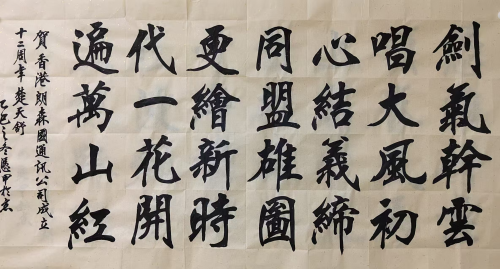 劍氣幹雲
唱大風初
心結義締
同盟雄圖
更繪新時
代一花開
遍萬山紅
賀香港朗森國通訊公司成立
十二周年 楚天舒
乙巳之冬